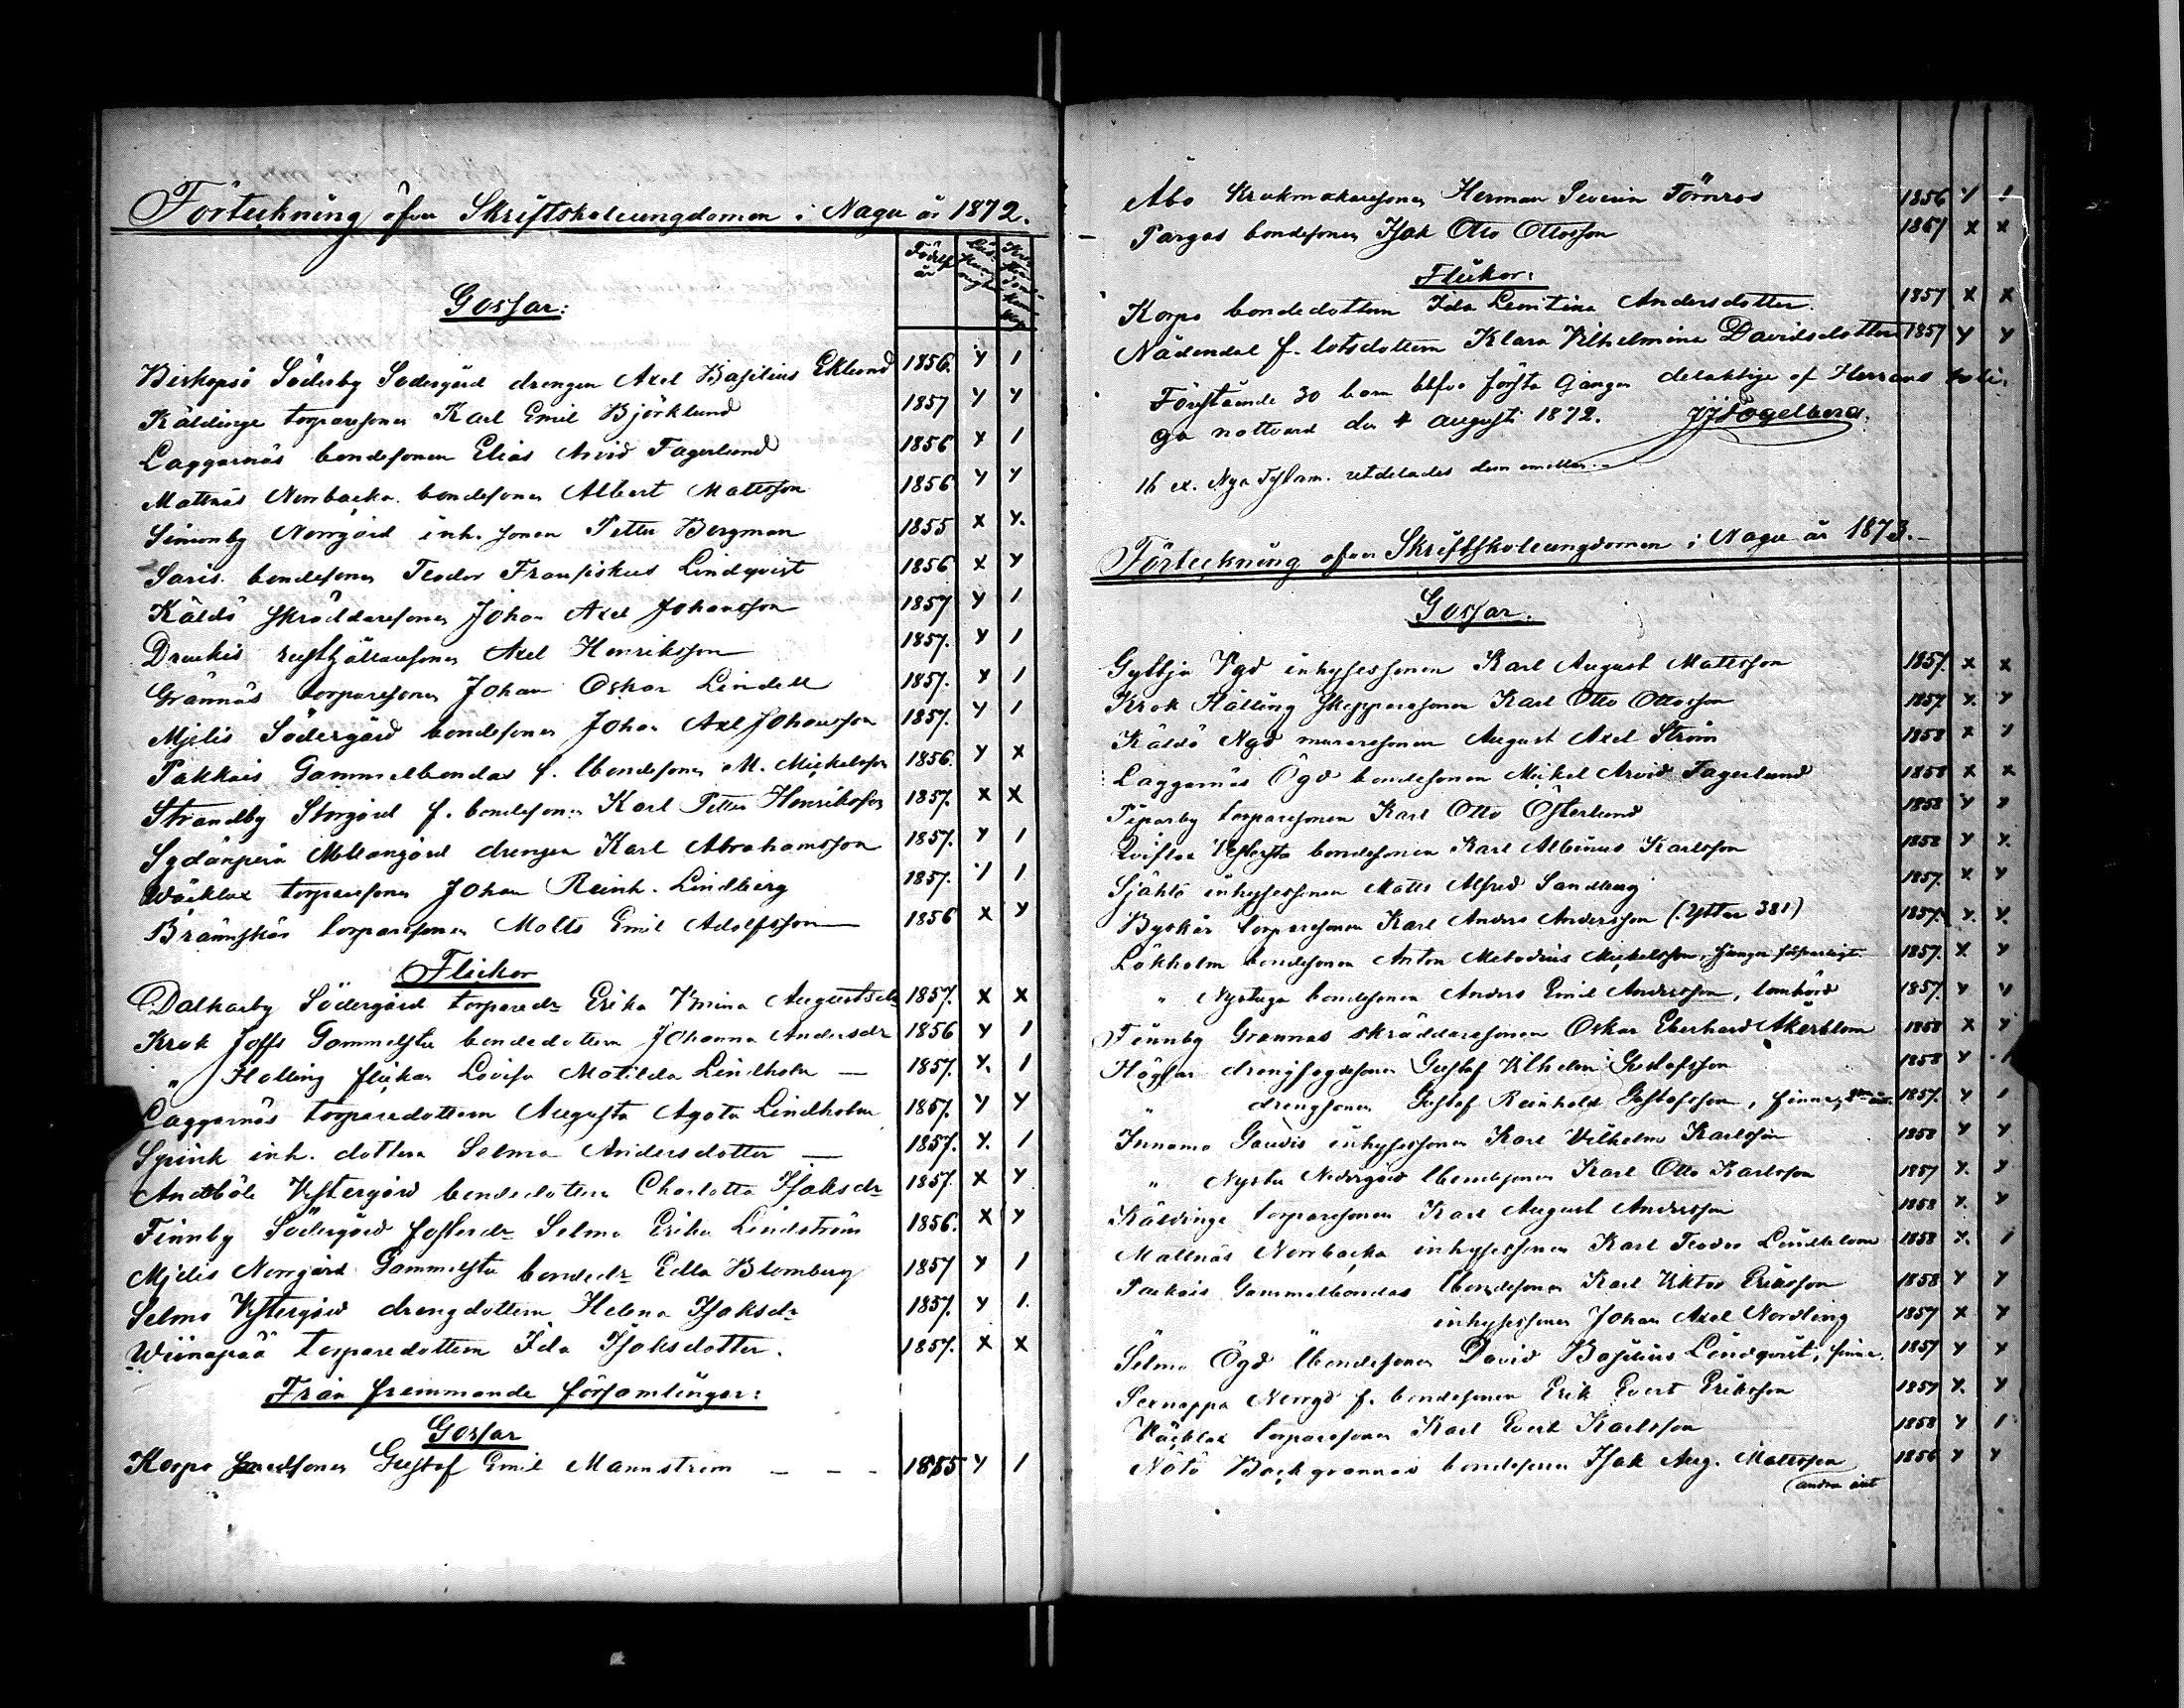 Förteckning öfver Skriftskoleungdomen i Nagu år 1872.
Födelse år
Gossar:
Biskopsö Söderby Södergård drengen Axel Basilius Eklund 1856. Y 1
Käldinge torparesonen Karl Emil Björklund 1857 Y Y
Laggarnäs bondesonen Elias Arvid Fagerlund 1856 Y 1
Mattnäs Norrbacka bondesonen Albert Mattsson 1856 Y Y
Simonby Norrgård inh. sonen Petter Bergman 1855 X Y.
Saris bondesonen Teodor Fransiskus Lindqvist 1856 X Y
Käldö Skräddaresonen Johan Axel Johansson 1857 Y 1
Druckis rusthållaresonen Axel Henriksson 1857. Y 1
Grännäs torparesonen Johan Oskar Lindell 1857. Y 1
Mjelis Södergård bondesonen Johan Axel Johansson 1857. Y 1
Pakkais Gammelbondas f. bondesonen M. Mickelsson 1856. Y X
Strandby Storgård f. bondesonen Karl Petter Henriksson 1857. X X
Sydänperä Mellangård drengen Karl Abrahamsson 1857. Y 1
Wäcklax torparesonen Johan Reinh. Lindberg 1857. 1 1
Brännskär torparesonen Matts Emil Adolfsson 1856 X Y
Flickor
Dalkarby Södergård torparedr Erika Vmina Augustsdr 1857. X X
Krok Joffs Gammelstu bondedottern Johanna Andersdr 1856 Y 1
" Halling flickan Lovisa Matilda Lindholm — 1857. Y. 1
Laggarnäs torparedottern Augusta Agata Lindholm 1857. Y Y
Spink inh. dottern Selma Andersdotter — 1857. Y. 1
Andböle Vestergård bondedottern Charlotta Isaksdr 1857. X Y
Finnby Södergård fosterdr Selma Erika Lindström 1856. X Y
Mjelis Norrgård Gammelstu bondedr Edla Blomberg 1857 Y 1
Selmo Vestergård drengdottern Helena Isaksdr 1857. Y 1.
Wiinapää torparedottern Ida Isaksdotter. 1857. X X
Från fremmande församlingar:
Gossar
Korpo sonen Gustaf Emil Mannström — — — 1855 Y 1
Åbo Krukmakaresonen Herman Severin Törnros 1856 Y 1
Pargas bondesonen Isak Otto Ottosson 1857 X X
Flickor:
Korpo bondedottern Ida Leontina Andersdotter. 1857 X X
Nådendal f. lotsdottern Klara Vilhelmina Davidsdotter 1857 Y Y
Förestående 30 barn blefvo första gången delaktige af Herrans heli-
ga nattvard den 4 augusti 1872. JJFogelberg.
14 ex. Nya Testam. utdelades dem emellan.
Förteckning öfver Skriftskoleungdomen i Nagu år 1873.
Gossar.
Gyttja Vgd inhysessonen Karl August Mattsson 1857. X X
Krok Hälling Skepparesonen Karl Otto Ottosson 1857 Y. Y
Käldö Ngd muraresonen August Axel Ström 1858 X Y
Laggarnäs Ögd bondesonen Mickel Arvid Fagerlund 1858 X X
Piparby torparesonen Karl Otto Österlund 1858 Y Y
Qviflax Vestersta bondesonen Karl Albinus Karlsson 1858 Y Y.
Själö inhysessonen Matts Alfred Sandberg 1857. X Y
Byskär torparesonen Karl Anders Andersson (Ytter 381) 1857. Y. Y.
Lökholm bondesonen Anton Metodius Mickelsson, 1857. X Y
" Nystuga bondesonen Anders Emil Andersson, lomhörd 1857. Y Y
Finnby Grannas skräddaresonen Oskar Eberhard Åkerblom 1858 X Y
Högsar drengfogdesonen Gustaf Vilhelm Gustafsson 1858 Y 1
" drengsonen Gustaf Reinhold Gustafsson, finne, 1857. Y 1
Innamo Gaudis inhysessonen Karl Vilhelm Karlsson 1858 Y Y
" Nystu Nedergård bondesonen Karl Otto Karlsson 1857 Y. Y
Käldinge torparesonen Karl August Andersson 1858 Y. Y
Mattnäs Norrbacka inhysessonen Karl Teodor Lindblom 1858 Y. 1
Packais Gammelbondas bondesonen Karl Viktor Eriksson 1858 Y Y
" inhysessonen Johan Axel Nordling 1857 X Y
Selmo Ögd bondesonen David Basilius Lindqvist, finne. 1857 Y Y
Sexnappa Norrgd f. bondesonen Erik Evert Eriksson 1857 Y. Y
Väcklax torparesonen Karl Evert Karlsson 1858 Y 1
Nötö Backgrannas bondesonen Isak Aug. Mattsson 1856 Y Y
(andra året